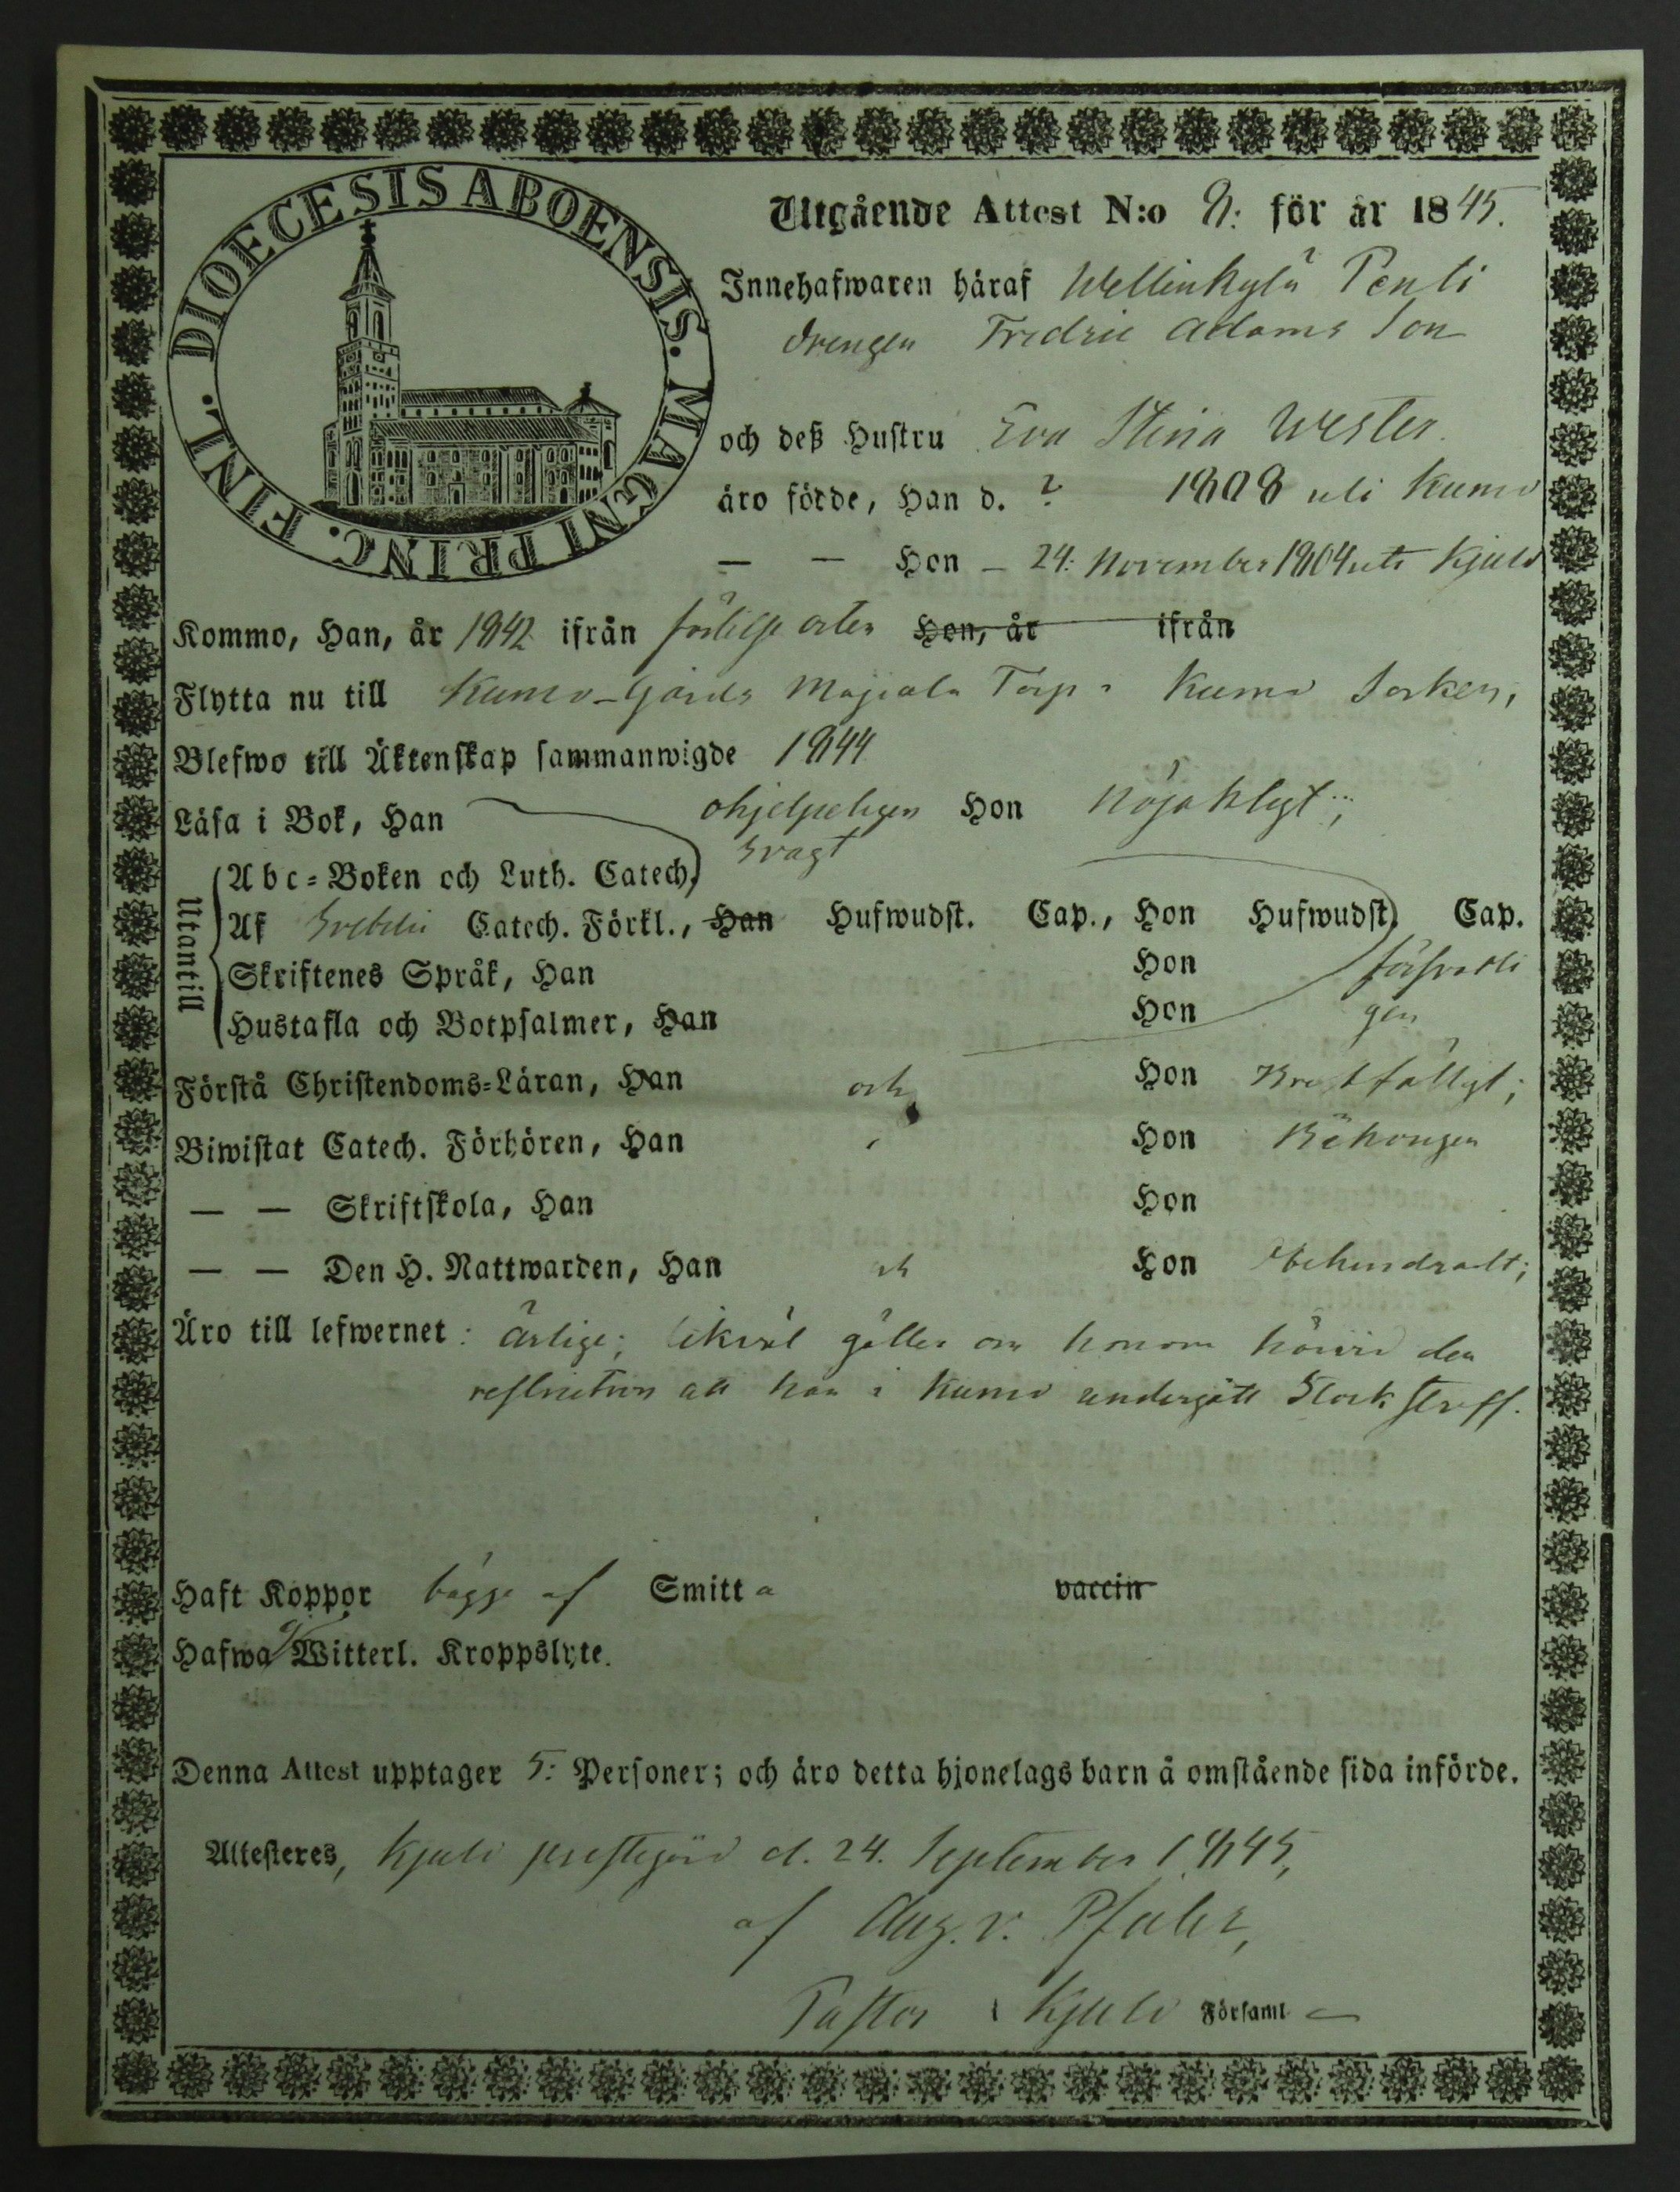 DIOECESIS ABOENSIS. MAGNI PRINC. FINL.
Utgående Attest N:o 8: för år 1845.
Innehafwaren häraf Wellinkylä Penti
drengen Fredric Adams Son
och deß Hustru Eva Stina Wester
äro födde, Han d. ? 1808 uti Kumo
— — Hon — 24: November 1804 uti Kjulo
Kommo, Han, år 1842 ifrån födelse orten Hon, år ifrån
Flytta nu till Kumo-Gårds Torp i Kumo Socken,
Blefwo till Äktenskap sammanwigde 1844
Läsa i Bok, Han ohjelpeligen svagt Hon nöjaktigt;
Utantill
Abc-Boken och Luth. Catech.
Af Svebelii Catech. Förkl., Han Hufwudst. Cap., Hon Hufwudst. Cap.
Skriftenes Språk, Han Hon försvarli
Hustafla och Botpsalmer, Han Hon gen
Förstå Christendoms-Läran, Han och Hon Bristfälligt;
Biwistat Catech. Förhören, Han Hon Behörigen
— — Skriftskola, Han Hon
— — Den H. Nattwarden, Han och Hon Obehindradt;
Äro till lefwernet: ärlige; likväl gäller om honom den
restriction att han i Kumo undergått Stock straff.
Haft Koppor bägge af Smitta vaccin
Hafwa ej Witterl. Kroppslyte.
Denna Attest upptager 5: Personer; och äro detta hjonelags barn å omstående sida införde.
Attesteres, Kjulo prestegård d. 24. September 1845,
af Aug. v. Pfaler,
Pastor i Kjulo Församl